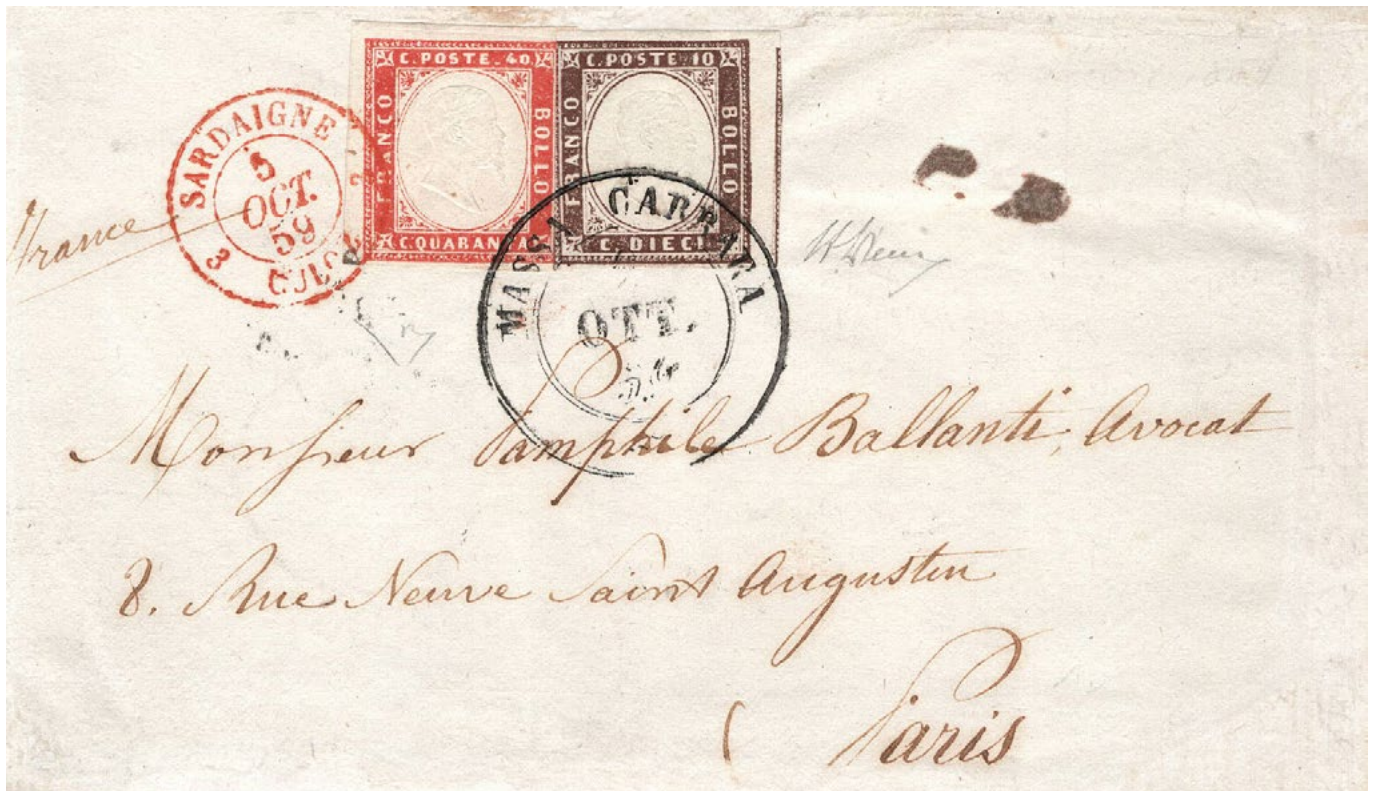 C. POSTE. 40
FRANCO
BOLLO
C. QUARANTA
C. POSTE. 10
FRANCO
BOLLO
C. DIECI
SARDAIGNE
5
OCT.
59
3
CULOZ
3
MASSA CARRARA
OTT.
France
Monsieur Pamphile Ballanti, Avocat
8. Rue Neuve Saint Augustin
Paris